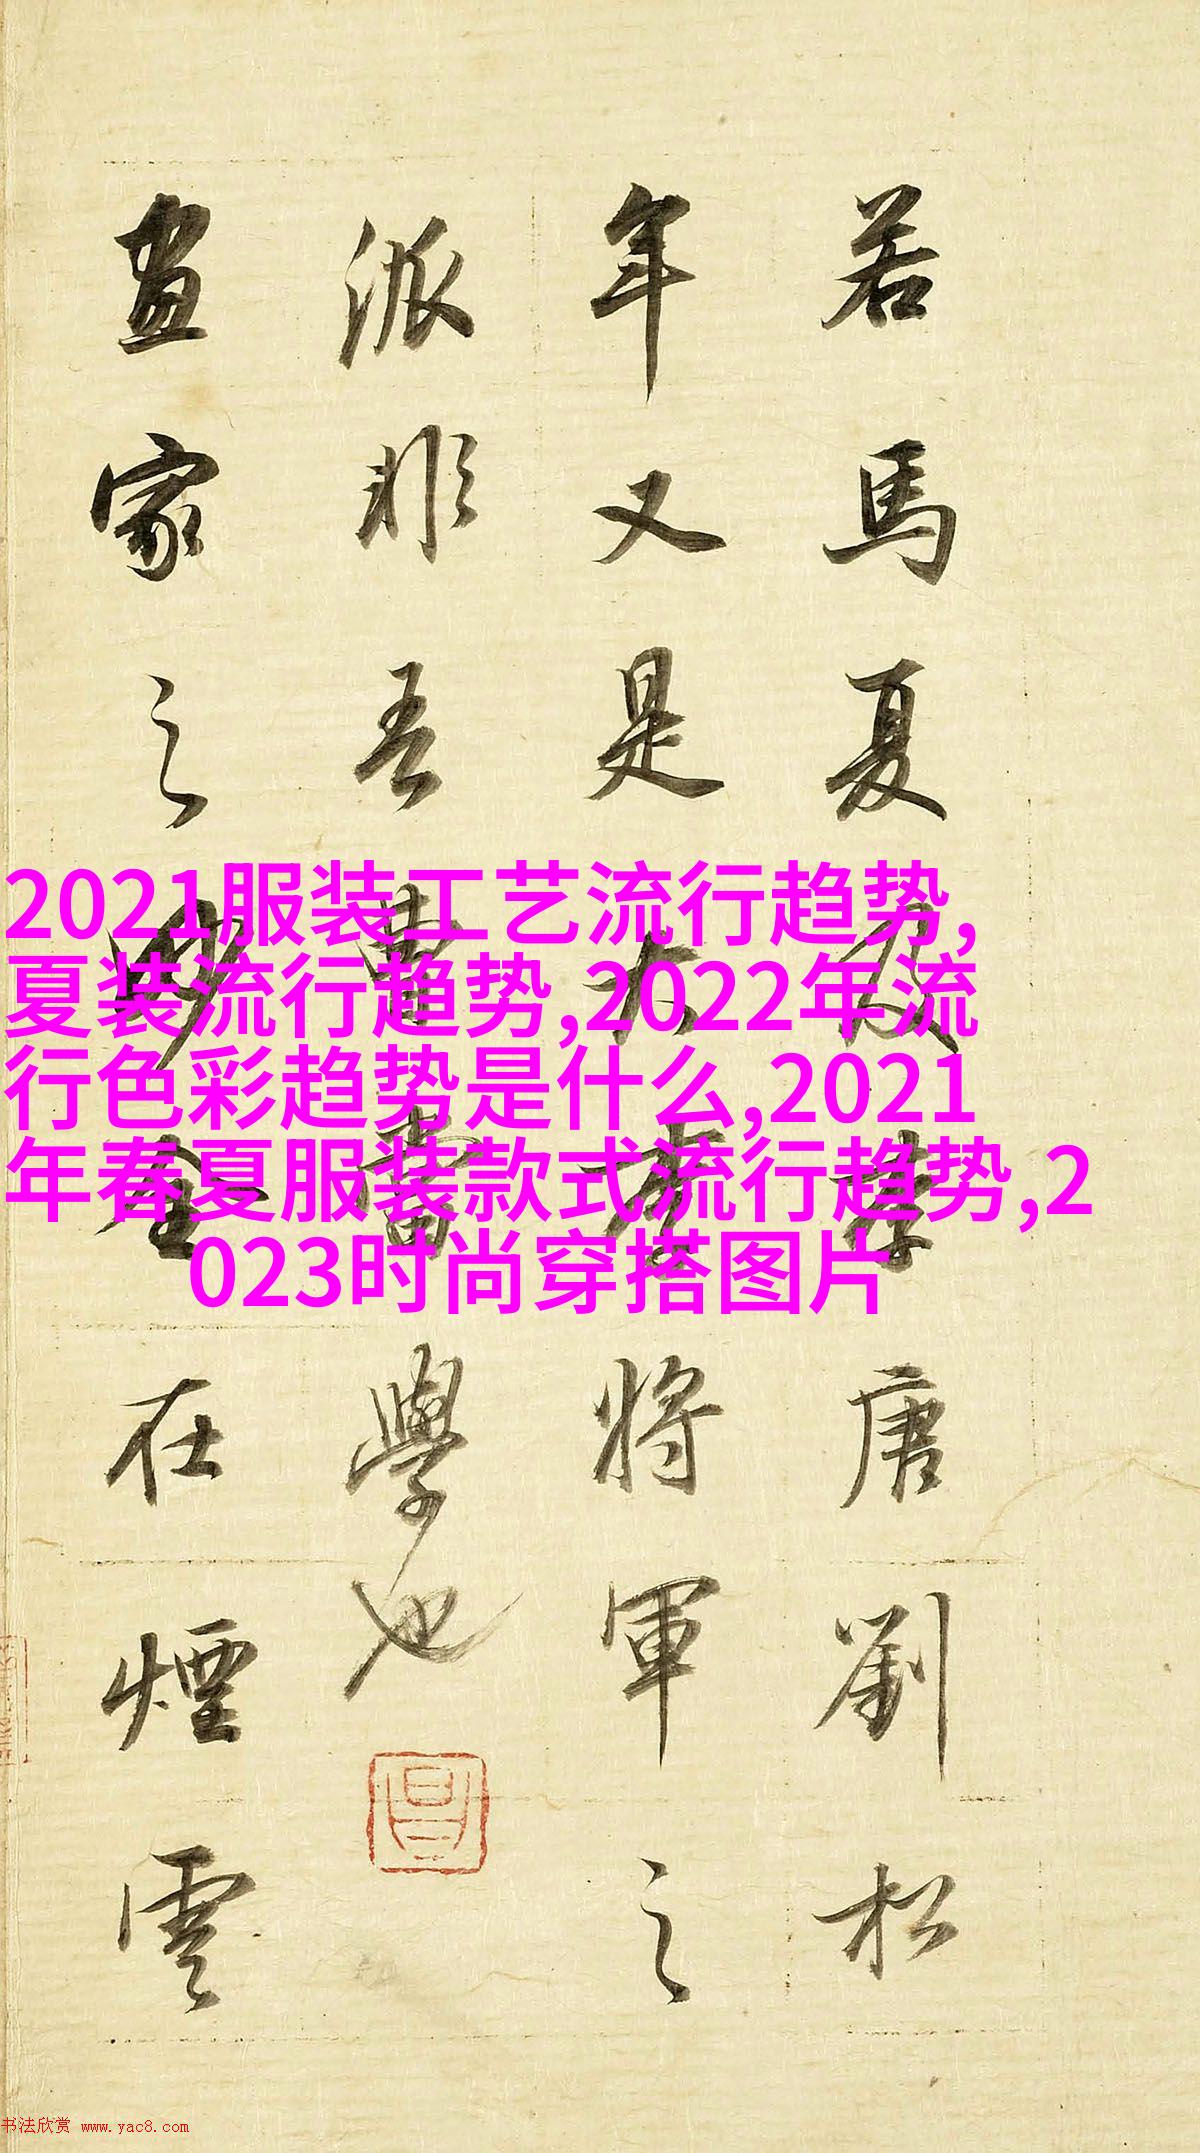 若馬夏及李唐劉松
年又是大李將軍之
派非吾曹當學也
畫家之妙全在煙雲
2021服装工艺流行趋势,
夏装流行趋势,2022年流
行色彩趋势是什么,2021
年春夏服装款式流行趋势,2
023时尚穿搭图片
书法欣赏 www.yac8.com